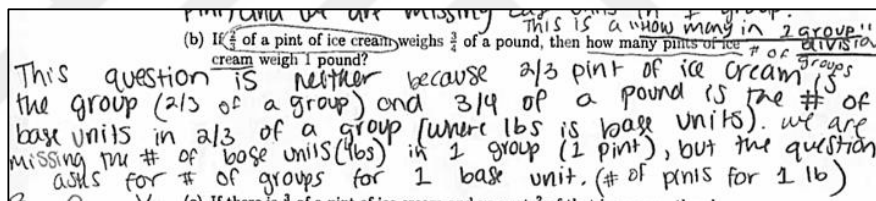 and we are missing
This is a "How many in 1 group"
(b) If 2/3 of a pint of ice cream weighs 3/4 of a pound, then how many pints of ice # of division
cream weigh 1 pound? groups
This question is neither because 2/3 pint of ice cream is
the group (2/3 of a group) and 3/4 of a pound is the # of
base units in 2/3 of a group [where lbs is base units). we are
missing the # of base units (lbs) in 1 group (1 pint), but the question
asks for # of groups for 1 base unit. (# of pints for 1 lb)